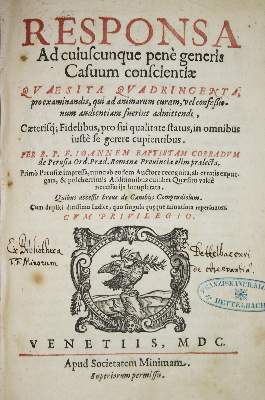 RESPONSA
Ad cuiuscunque penè generis
Casuum conscientiæ
QVAESITA QVADRINGENTA,
pro examinandis, qui ad animarum curam, vel confessio-
num audientiam fuerint admittendi,
Cæterisq; Fidelibus, pro sui qualitate status, in omnibus
iustè se gerere cupientibus.
PER R. P. F. IOANNEM BAPTISTAM CORRADVM
de Perusia Ord. Præd. Romanæ Prouinciæ olim
Primò Perusiæ impressa, nunc ab eodem Auctore recognita, ab erratis expur-
gata, & pulcherrimis Additionibus cuilibet Quæsito valdè
necessarijs locupletata.
Quibus accessit breue de Cambijs Compendium.
Cum duplici
CVM PRIVILEGIO.
Ex Bibliotheca
FF. Minorum
Dettelbacensi
de observantia
FRANZISKANER
DETTELBACH
VENETIIS, MDC.
Apud Societatem Minimam.
Superiorum permissu.